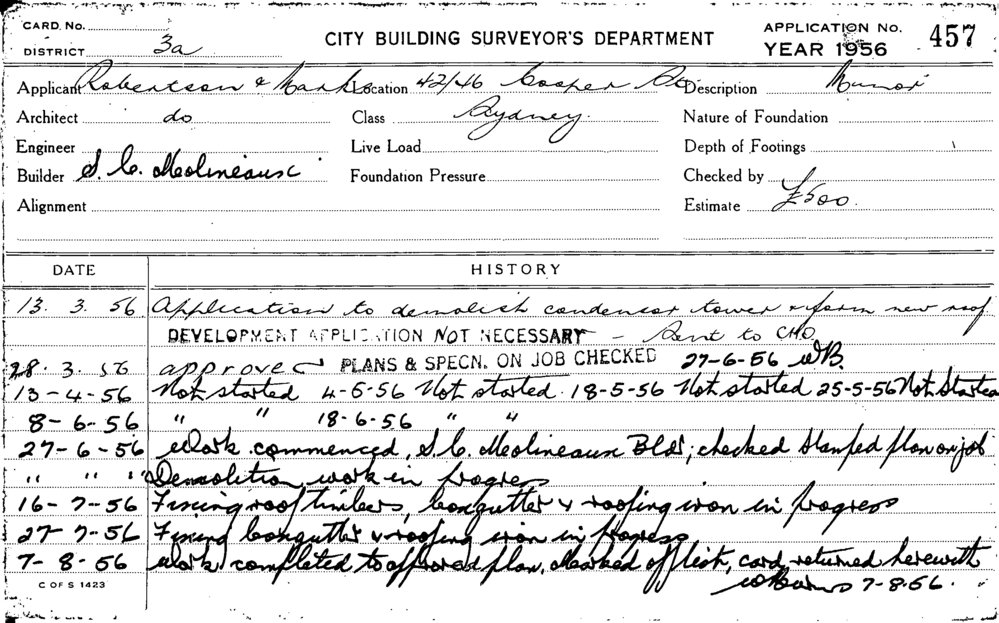 CARD No.
DISTRICT 3a
CITY BUILDING SURVEYOR'S DEPARTMENT
APPLICATION No. 457
YEAR 1956
Applicant Robertson & Marks Location 42/46 Cooper St Description Minor
Architect do Class Sydney. Nature of Foundation
Engineer Live Load Depth of Footings
Builder S. C. Molineaux Foundation Pressure Checked by
Alignment Estimate £500.
DATE HISTORY
13. 3. 56. Application to demolish condensor tower & form new roof
DEVELOPMENT APPLICATION NOT NECESSARY – Sent to C.H.O.
28. 3. 56 approved PLANS & SPECN. ON JOB CHECKED 27-6-56 WB.
13-4-56 Not started 4-5-56 Not started. 18-5-56 Not started 25-5-56 Not Started
8-6-56 " " 18-6-56 " "
27-6-56 Work commenced, S. C. Molineaux Bldr; checked stamped plan on job
" " " Demolition work in progress
16-7-56 Fixing roof timbers, boxgutter & roofing iron in progress
27-7-56 Fixing boxgutter & roofing iron in progress
7-8-56 Work completed to approved plan, Marked off list, card returned herewith
C OF S 1423
WBurns 7-8-56.